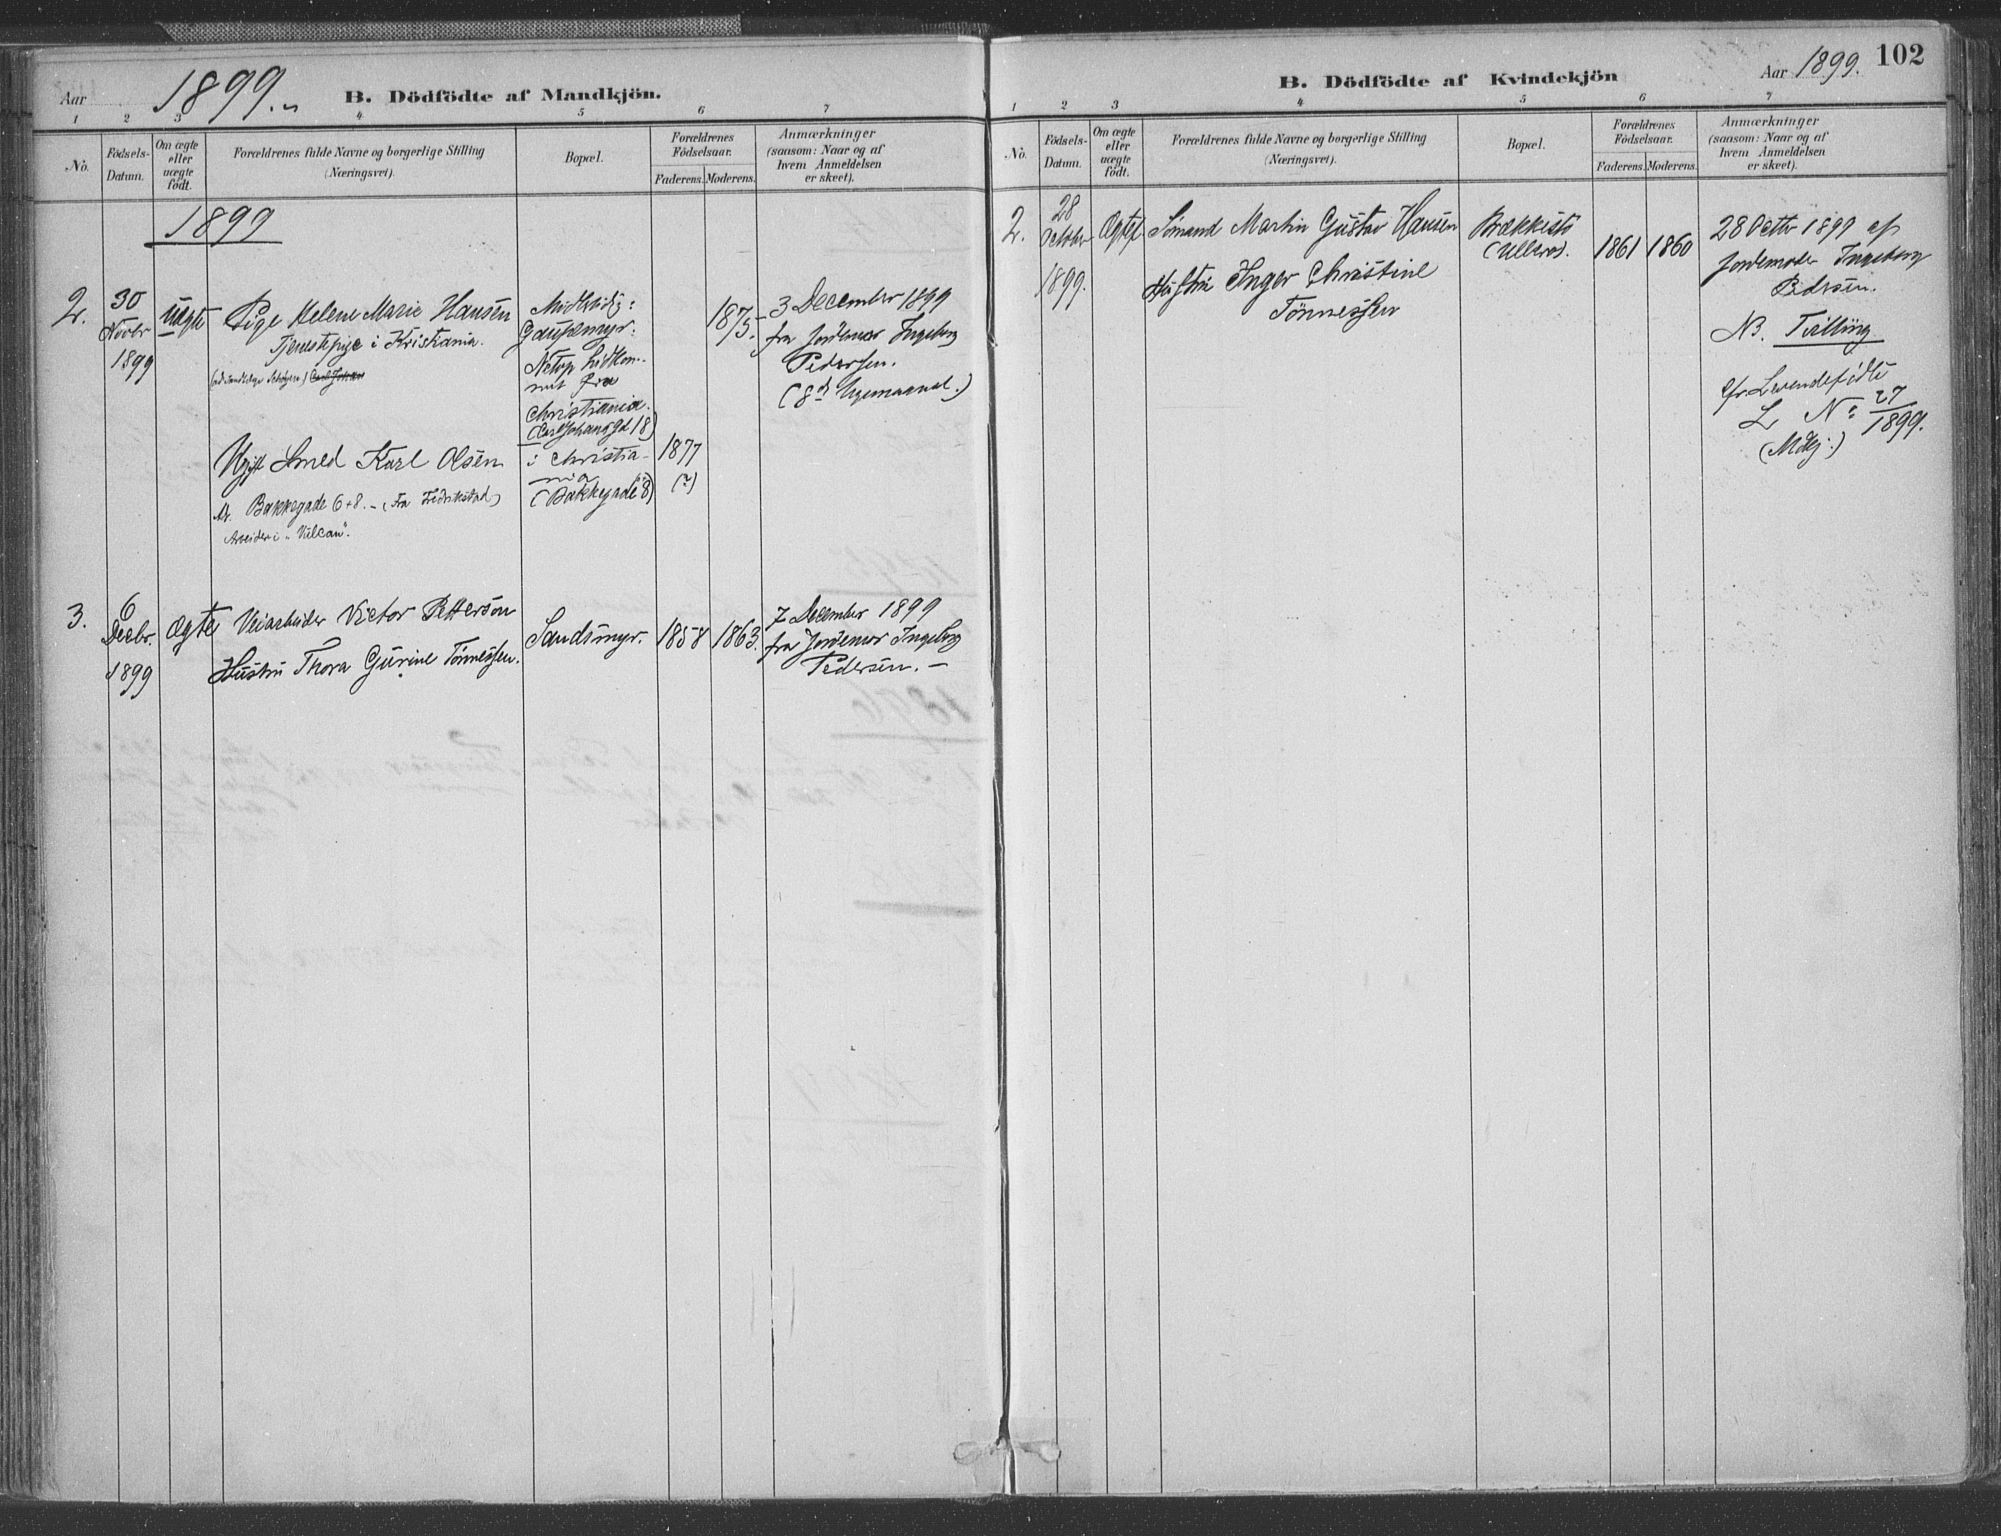 Aar 1899.
B. Dödfödte af Mandkjön.
1 2 3 4 5 6 7
No.
Födsels-
Datum.
Om ægte
eller
uægte
födt.
Forældrenes fulde Navne og borgerlige Stilling
(Næringsvei).
Bopæl.
Forældrenes
Födselsaar.
Faderens. Moderens.
Anmærkninger
(saasom: Naar og af
hvem Anmeldelsen
er skeet).
1899
2.
30
Novbr
1899
Uægte
Pige Helene Marie Hansen
Tjenestepige i Kristiania.
Carl Johan
Midlertidig:
Gauslemyr.
Netop hidkom-
met fra
Christiania.
(Carl Johansgd 18)
1875.
3 December 1899
fra Jordemor Ingeborg
Pedersen.
(8de Ugemaaned.)
Ugift Smed Karl Olsen
Bakkegade 6+8. - (Fra Fredrikstad)
Arbeider i "Vulcan".
i Christia-
nia
(Bakkegade 8)
1877
(?)
3.
6
Decbr.
1899
Ægte
Veiarbeider Victor Petterson
Hustru Thora Gurine Tønnessen.
Sandsmyr.
1858 1863.
7 December 1899
fra Jordemor Ingeborg
Pedersen. -
B. Dödfödte af Kvindekjön
Aar 1899. 102
1 2 3 4 5 6 7
No.
Födsels-
Datum.
Om ægte
eller
uægte
födt.
Forældrenes fulde Navne og borgerlige Stilling
(Næringsvei).
Bopæl.
Forældrenes
Födselsaar.
Faderens. Moderens.
Anmærkninger
(saasom: Naar og af
hvem Anmeldelsen
er skeet).
2.
28
October
1899.
Ægtef
Sømand Martin Gustav Hansen
Hustru Inger Christine
Tønnessen
Bækkestø
1861 1860
28 Octbr 1899 af
Jordemoder Ingeborg
Pedersen.
NB. Tvilling
cfr. Levendefødte
L No 27
1899.
(Mdkj.)